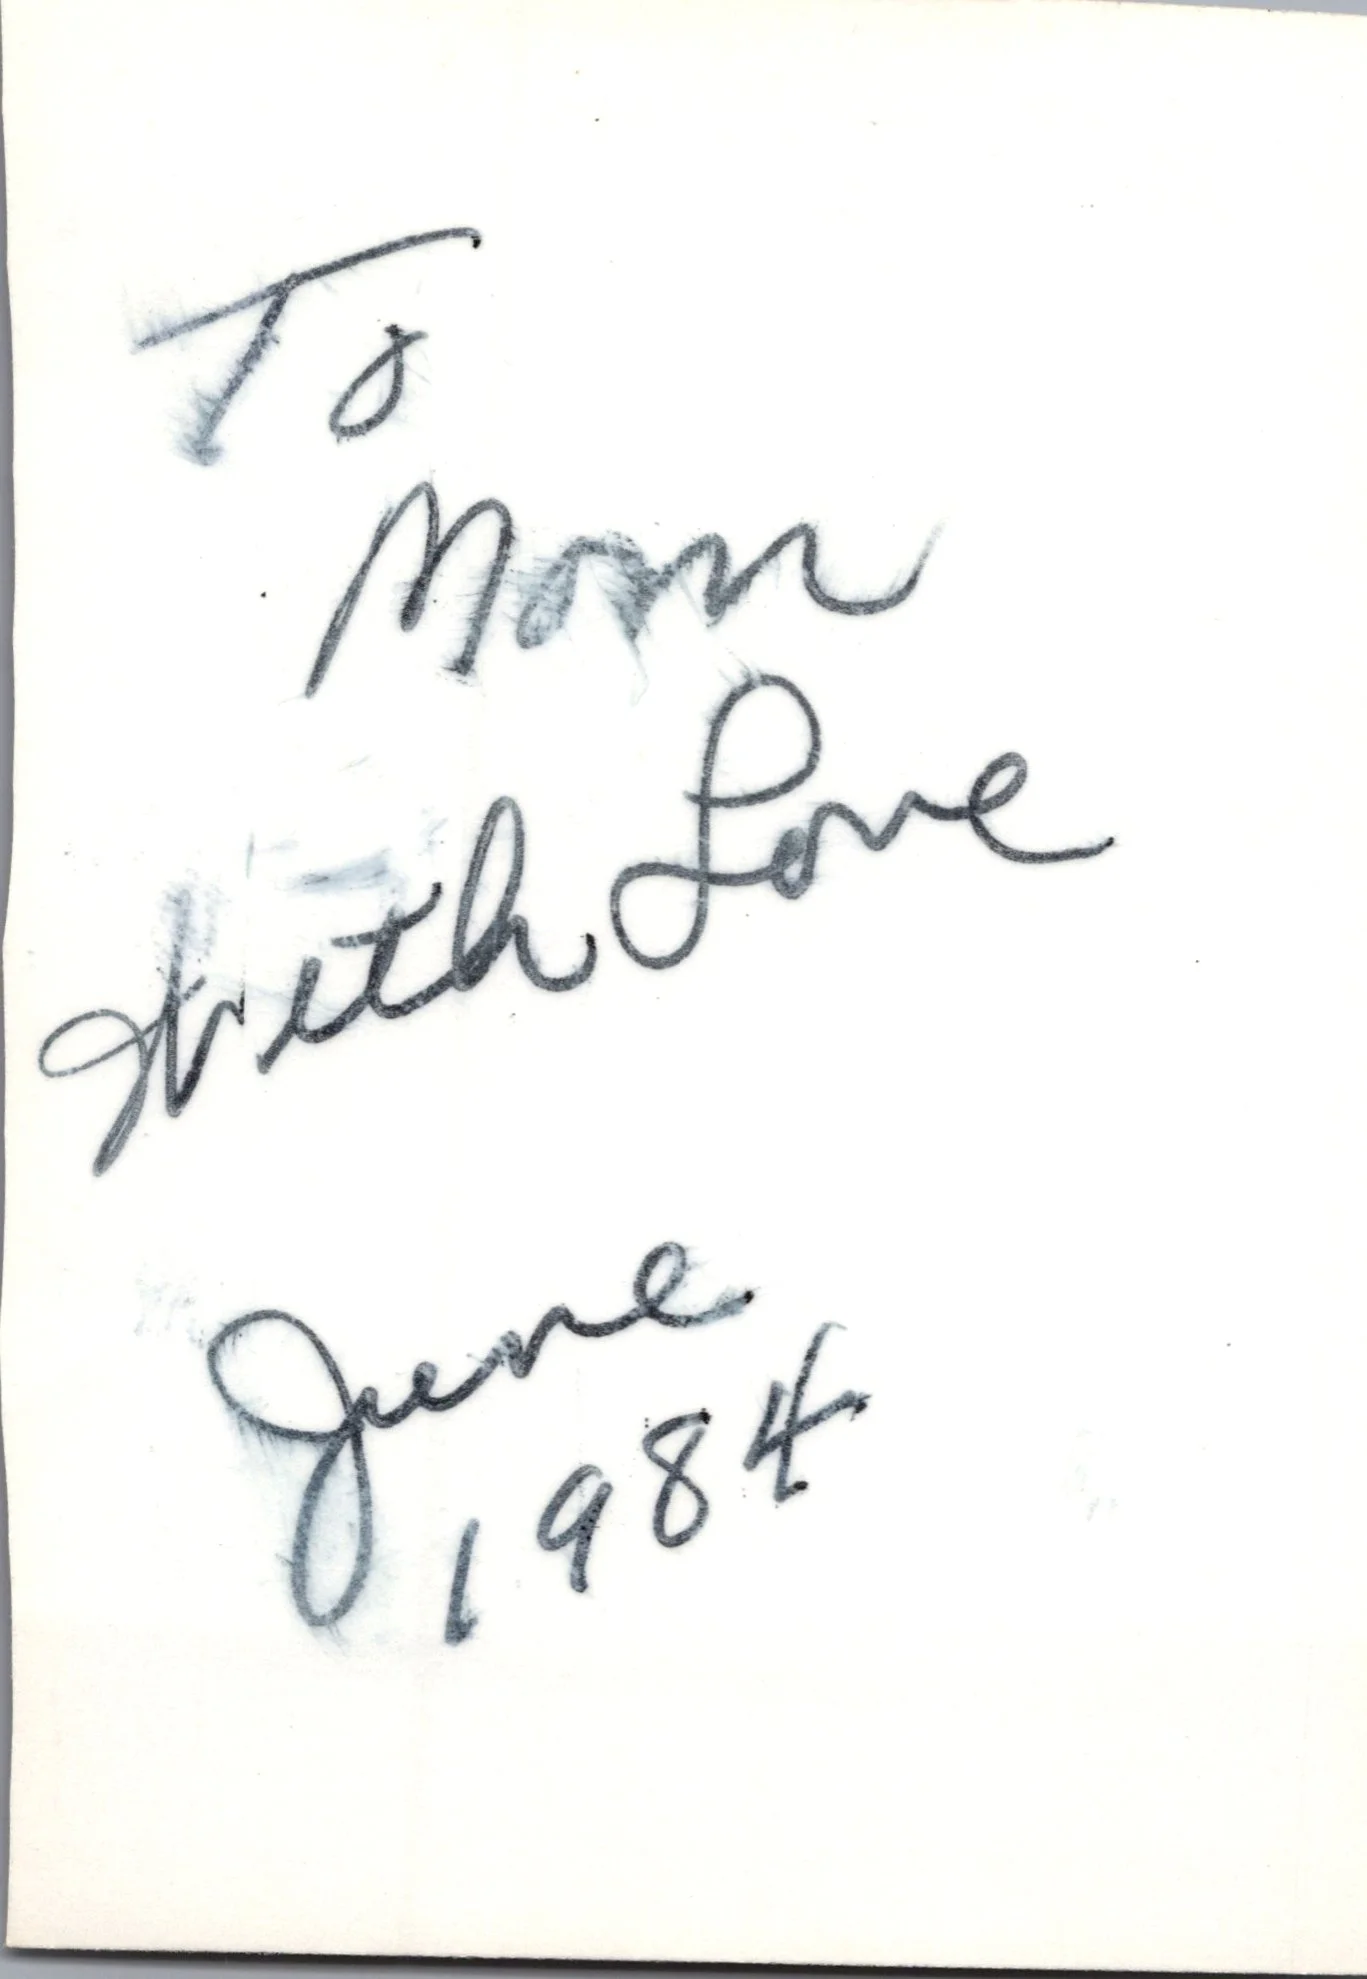 To
Mom
With Love
June
1984